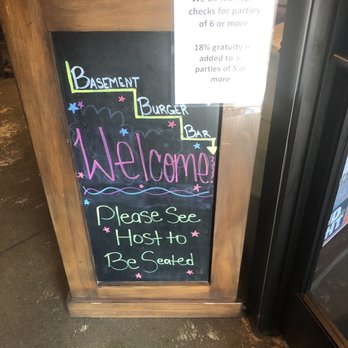 checks for parties
of 6 or more
18% gratuity
added to
parties of 5 or
more
Basement
Burger
Bar
Welcome
Please See
Host to
Be Seated